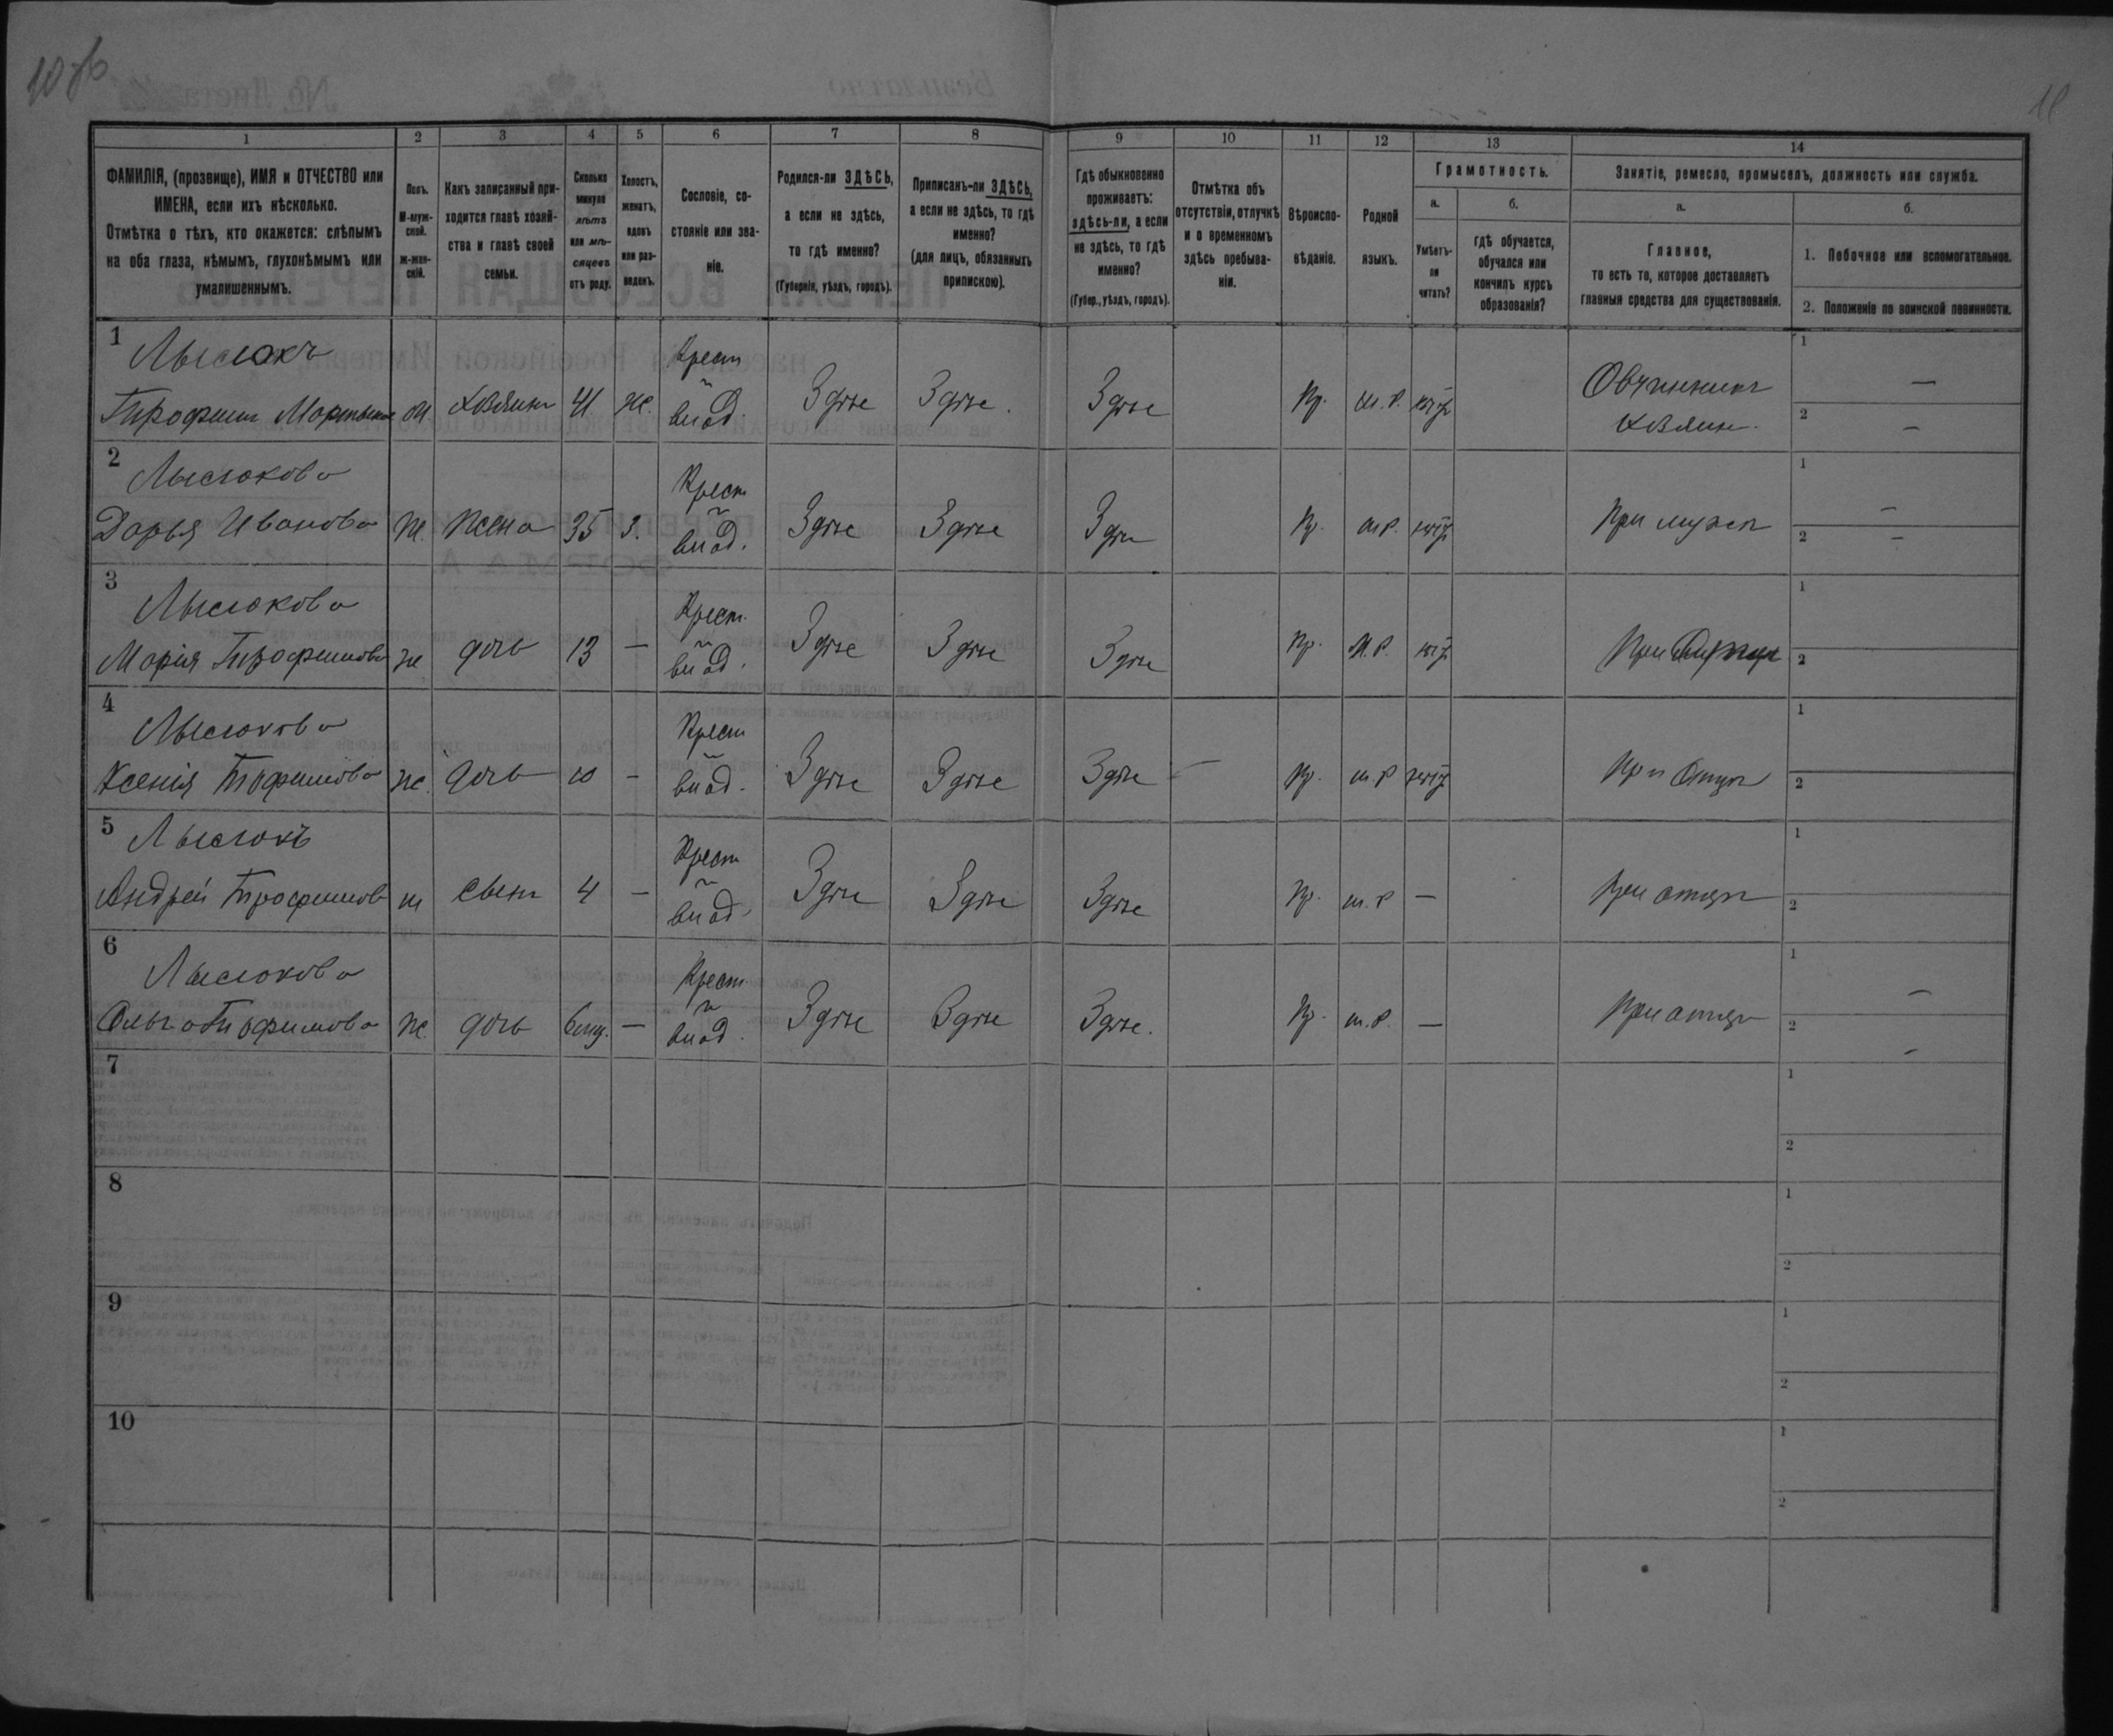 10 об
11
1 2 3 4 5 6 7 8 9 10 11 12 13 14
ФАМИЛІЯ, (прозвище), ИМЯ и ОТЧЕСТВО или
ИМЕНА, если ихъ нѣсколько.
Отмѣтка о тѣхъ, кто окажется: слѣпымъ
на оба глаза, нѣмымъ, глухонѣмымъ или
умалишеннымъ.
Полъ.
М-муж-
ской.
Ж-жен-
скій.
Какъ записанный при-
ходится главѣ хозяй-
ства и главѣ своей
семьи.
Сколько
минуло
лѣтъ
или мѣ-
сяцевъ
отъ роду.
Холостъ,
женатъ,
вдовъ
или раз-
веденъ.
Сословіе, со-
стояніе или зва-
ніе.
Родился-ли ЗДѢСЬ,
а если не здѣсь,
то гдѣ именно?
(Губернія, уѣздъ, городъ).
Приписанъ-ли ЗДѢСЬ,
а если не здѣсь, то гдѣ
именно?
(для лицъ, обязанныхъ
припискою).
Гдѣ обыкновенно
проживаетъ:
здѣсь-ли, а если
не здѣсь, то гдѣ
именно?
(Губер., уѣздъ, городъ).
Отмѣтка объ
отсутствіи, отлучкѣ
и о временномъ
здѣсь пребыва-
ніи.
Вѣроиспо-
вѣданіе.
Родной
языкъ.
Грамотность.
а.
Умѣетъ-
ли
читать?
б.
гдѣ обучается,
обучался или
кончилъ курсъ
образованія?
Занятіе, ремесло, промыселъ, должность или служба.
а.
Главное,
то есть то, которое доставляетъ
главныя средства для существованія.
б.
1. Побочное или вспомогательное.
2. Положеніе по воинской повинности.
1
Лысюкъ Крест Овчинникъ 1 —
Трофим М. хозяинъ 41 ж. Здѣсь Здѣсь. Здѣсь Пр. м.р. хозяин. 2 —
2
Лысюкова Крест 1 —
Дарья Иванова ж. жена 35 з. Здѣсь Здѣсь Здѣсь Пр. м.р. При мужѣ 2 —
3
Лысюкова Крест. 1
Марія Трофимова ж дочь 13 — Здѣсь Здѣсь Здѣсь Пр. м.р. При 2
4
Лысюкова Крест 1
Ксенія Трофимова ж. дочь 10 — Здѣсь Здѣсь Здѣсь — Пр. м.р При Отцѣ 2
5
Лысюкъ Крест 1
Андрей Трофимов м сынъ 4 — Здѣсь Здѣсь Здѣсь Пр. м.р — При отцѣ 2
6
Лысюкова Крест. 1 —
Ольга Трофимова ж. дочь 6 — Здѣсь Здѣсь Здѣсь. Пр. м.р. — При отцѣ 2 —
7 1
2
8 1
2
9 1
2
10 1
2